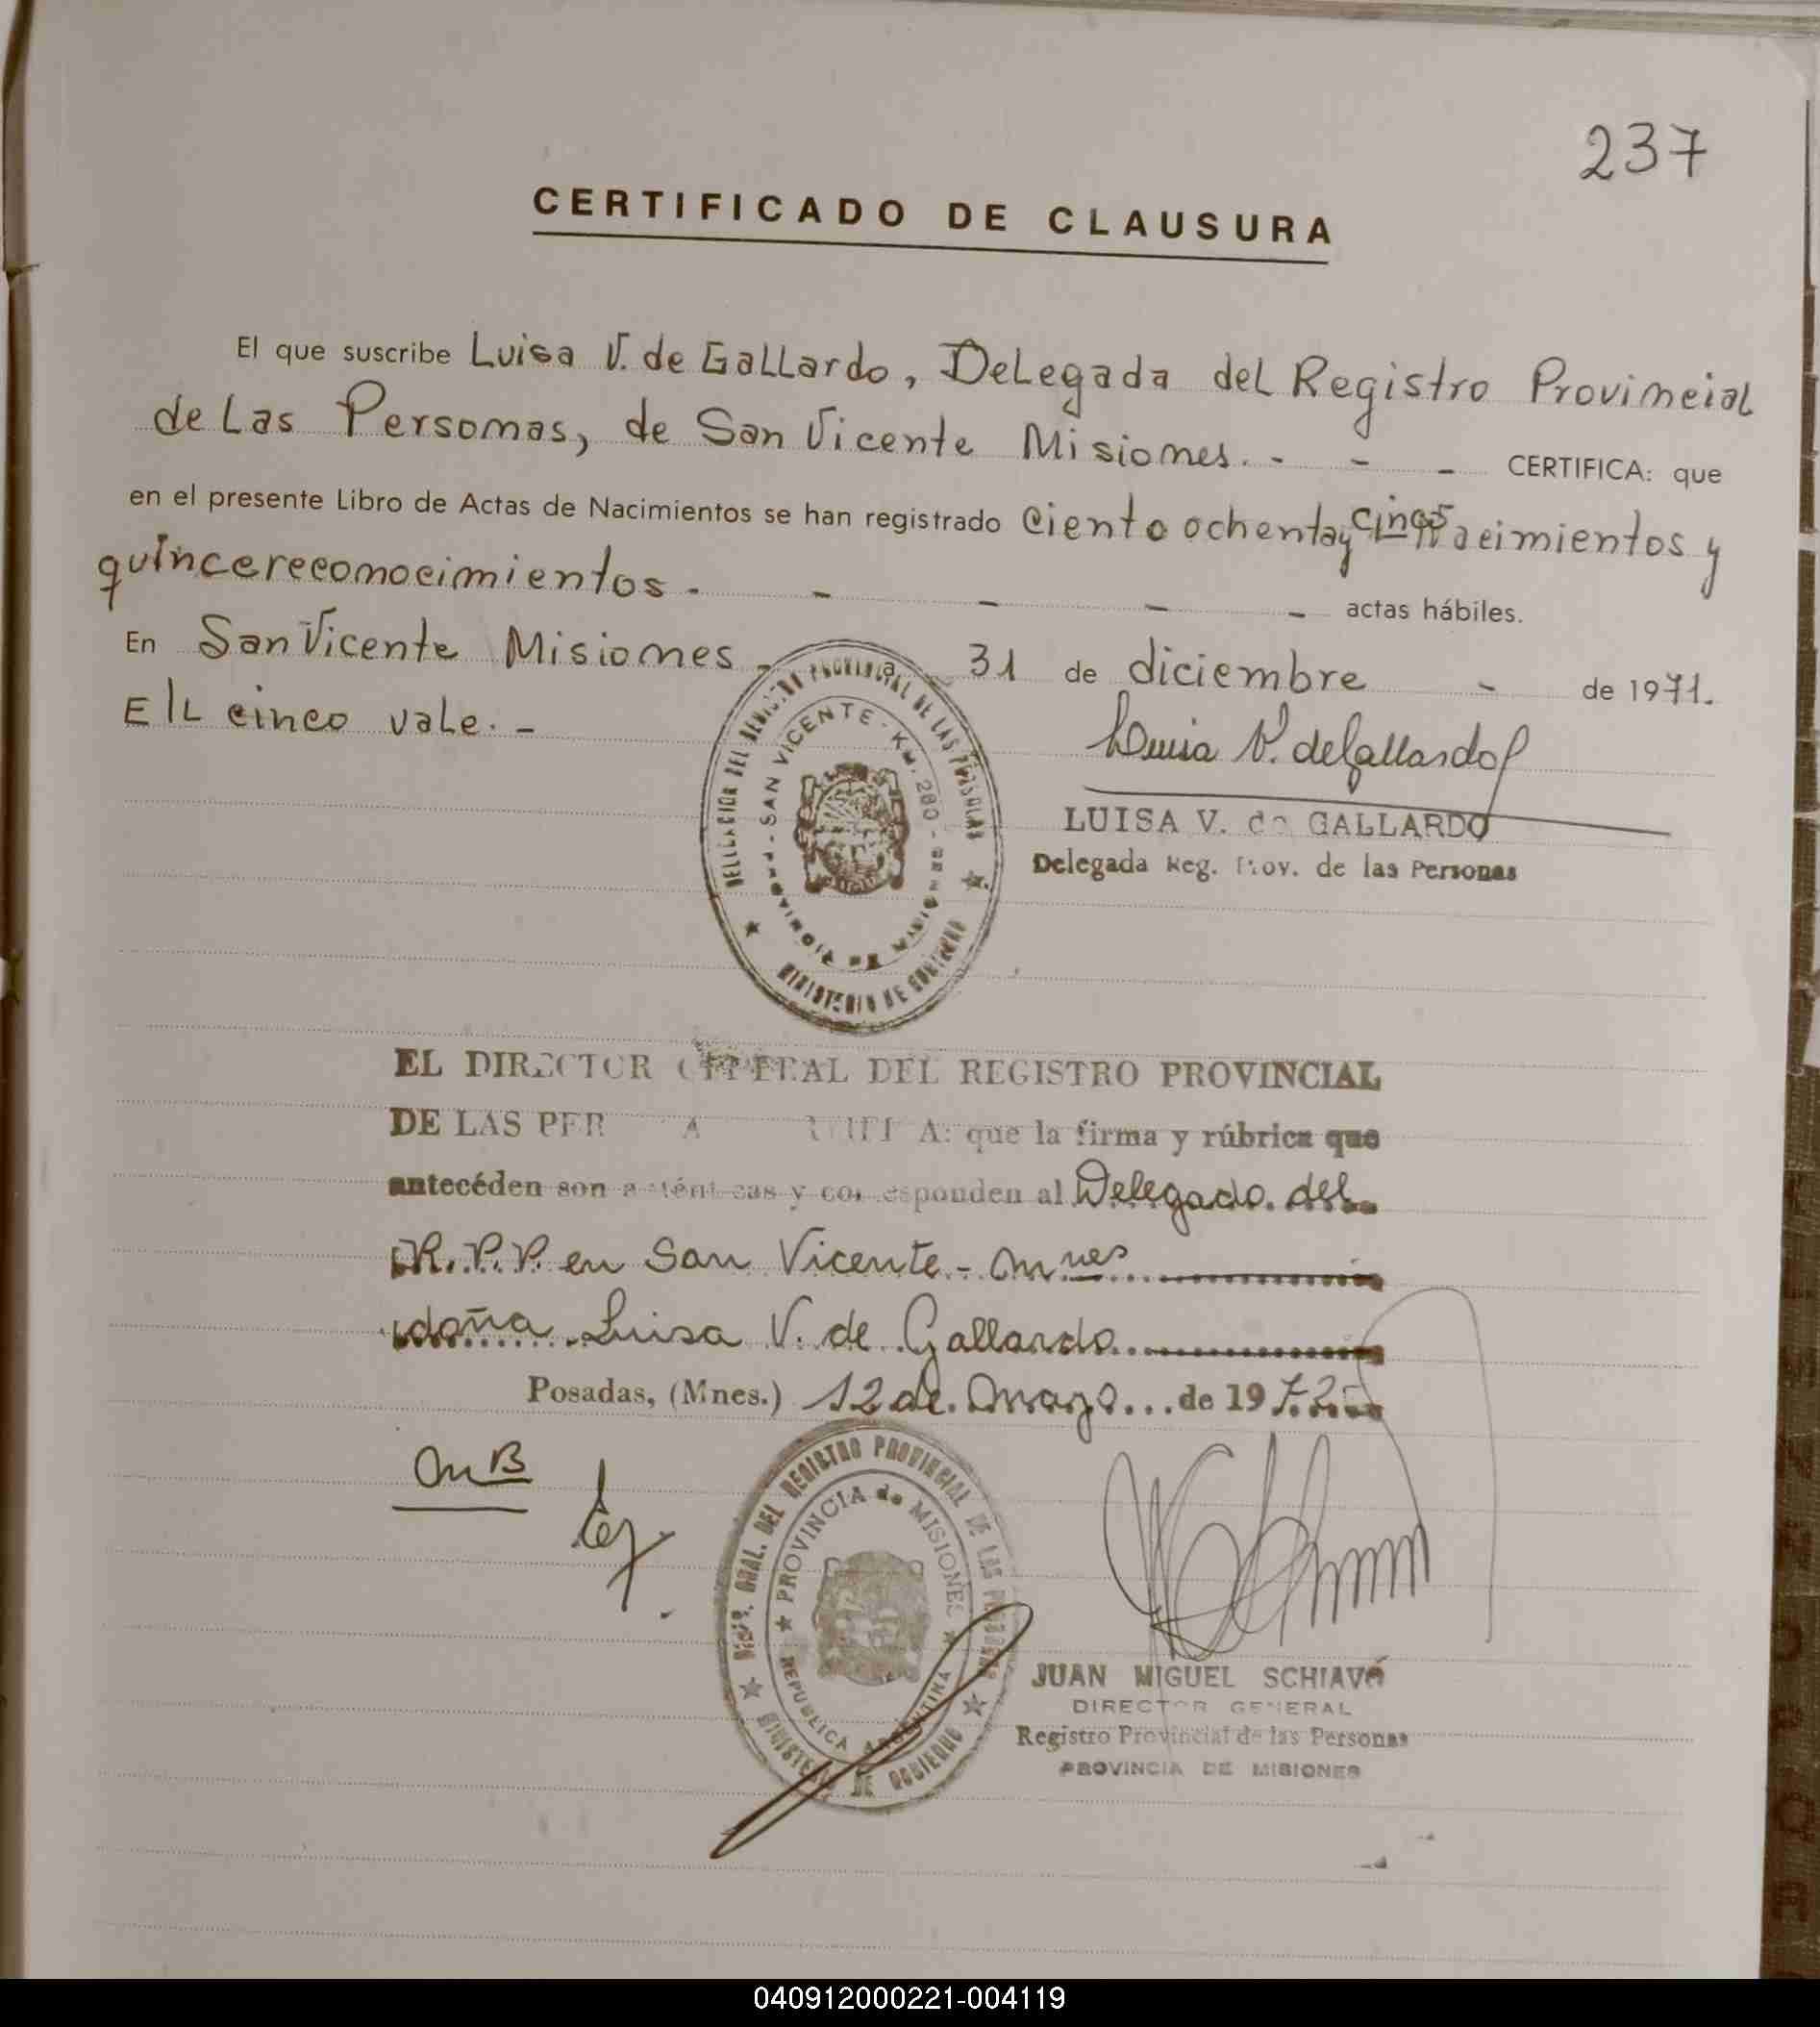 237
CERTIFICADO DE CLAUSURA
El que suscribe Luisa V. de Gallardo, Delegada del Registro Provincial
de Las Personas, de San Vicente Misiones. - - - CERTIFICA: que
en el presente Libro de Actas de Nacimientos se han registrado Ciento ochenta y cinco nacimientos y
quince reconocimientos. - - - - - actas hábiles.
En San Vicente Misiones - a 31 de diciembre - de 1971.
E/L cinco vale. -
Luisa V. de Gallardo
LUISA V. de GALLARDO
Delegada Reg. Prov. de las Personas
DELEGACION DEL REGISTRO PROVINCIAL DE LAS PERSONAS
SAN VICENTE - KM. 280 -
PROVINCIA DE MISIONES
MINISTERIO DE GOBIERNO
EL DIRECTOR GENERAL DEL REGISTRO PROVINCIAL
DE LAS PER A A: que la firma y rúbrica que
antecéden son auténticas y corresponden al Delegado del
R.P.P. en San Vicente - Mnes
doña Luisa V. de Gallardo
Posadas, (Mnes.) 12 de Marzo de 1972
MB
DIREC. GRAL. DEL REGISTRO PROVINCIAL DE LAS PERSONAS
PROVINCIA de MISIONES
REPUBLICA ARGENTINA
MINISTERIO DE GOBIERNO
JUAN MIGUEL SCHIAVÓ
DIRECTOR GENERAL
Registro Provincial de las Personas
PROVINCIA DE MISIONES
040912000221-004119